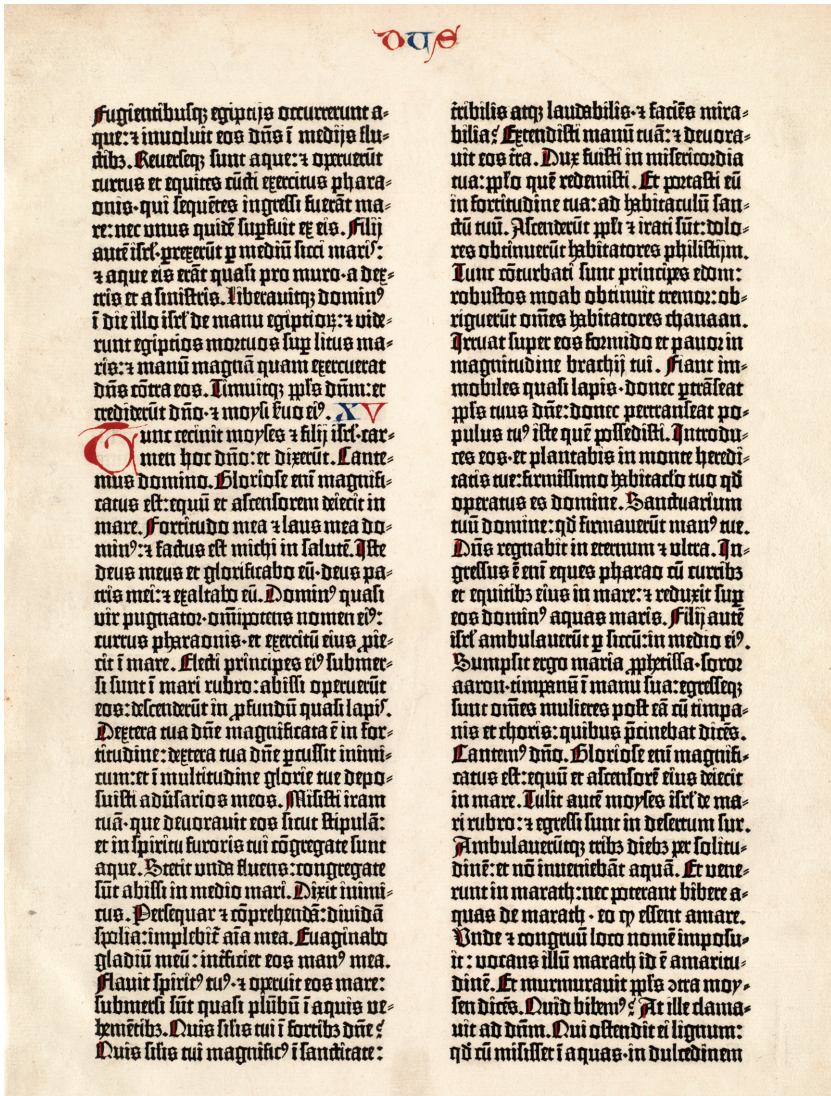 DUS
Fugientibusq; egiptijs occurrerunt a-
que: ⁊ inuoluit eos dñs ī medijs flu-
ctibꝫ. Reuerseq; sunt aque: ⁊ operuerūt
currus et equites cūcti exercitus phara-
onis· qui sequētes ingressi fuerāt ma-
re: nec unus quidē supfuit ex eis. Filij
autē isrł· prexerūt ꝑ mediū sicci maris:
⁊ aque eis erāt quasi pro muro· a dex-
tris et a sinistris. Liberauitq; dominꝰ
ī die illo isrł de manu egiptioꝝ: ⁊ vide-
runt egiptios mortuos sup litus ma-
ris: ⁊ manū magnā quam exercuerat
dñs cōtra eos. Timuitq; ppls dñm: et
crediderūt dño· ⁊ moysi s̄uo eiꝰ. XV
Tunc cecinit moyses ⁊ filij isrł· car-
men hoc dño: et dixerūt. Cante-
mus domino. Gloriose enī magnifi-
catus est: equū et ascensorem deiecit in
mare. Fortitudo mea ⁊ laus mea do-
minꝰ: ⁊ factus est michi in salutē. Iste
deus meus et glorificabo eū· deus pa-
tris mei: ⁊ exaltabo eū. Dominꝰ quasi
vir pugnator· om̄ipotens nomen eiꝰ:
currus pharaonis· et exercitū eius ꝓie-
cit ī mare. Electi principes eiꝰ submer-
si sunt ī mari rubro: abissi operuerūt
eos: descenderūt in ꝓfundū quasi lapis.
Dextera tua dñe magnificata ē in for-
titudine: dextera tua dñe ꝑcussit inimi-
cum: et ī multitudine glorie tue depo-
suisti adūsarios meos. Misisti iram
tuā· que deuorauit eos sicut stipulā:
et in spiritu furoris tui cōgregate sunt
aque. Stetit unda fluens: congregate
sūt abissi in medio mari. Dixit inimi-
cus. Persequar ⁊ cōprehendā: diuidā
spolia: implebit̄ aīa mea. Euaginabo
gladiū meū: int̄ficiet eos manꝰ mea.
Flauit spiritꝰ tuꝰ· ⁊ operuit eos mare:
submersi sūt quasi plūbū ī aquis ve-
hemētibꝫ. Quis silis tui ī fortibꝫ dñe?
Quis silis tui magnificꝰ ī sanctitate:
t̄ribilis atq; laudabilis· ⁊ faciēs mira-
bilia? Extendisti manū tuā: ⁊ deuora-
uit eos t̄ra. Dux fuisti in misericordia
tua: pplo quē redemisti. Et portasti eū
in fortitudine tua: ad habitaculū san-
ctū tuū. Ascenderūt ppli ⁊ irati sūt: dolo-
res obtinuerūt habitatores philistijm.
Tunc cōturbati sunt principes edom:
robustos moab obtinuit tremor: ob-
riguerūt om̄es habitatores chanaan.
Irruat super eos formido et pauor in
magnitudine brachij tui. Fiant im-
mobiles quasi lapis· donec ptrāseat
ppls tuus dñe: donec pertranseat po-
pulus tuꝰ iste quē possedisti. Introdu-
ces eos· et plantabis in monte heredi-
tatis tue: firmissimo habitaclo tuo qd̄
operatus es domine. Sanctuarium
tuū domine: qd̄ firmauerūt manꝰ tue.
Dñs regnabit in eternum ⁊ ultra. In-
gressus ē enī eques pharao cū curribꝫ
et equitibꝫ eius in mare: ⁊ reduxit sup
eos dominꝰ aquas maris. Filij autē
isrł ambulauerūt ꝑ siccū: in medio eiꝰ.
Sumpsit ergo maria ꝓphetissa· soror
aaron· timpanū ī manu sua: egresseq;
sunt om̄es mulieres post eā cū timpa-
nis et choris: quibus p̄cinebat dicēs.
Cantemꝰ dño. Gloriose enī magnifi-
catus est: equū et ascensorē eius deiecit
in mare. Tulit autē moyses isrł de ma-
ri rubro: ⁊ egressi sunt in desertum sur.
Ambulauerūtq; tribꝫ diebꝫ per solitu-
dinē: et nō inueniebāt aquā. Et vene-
runt in marath: nec poterant bibere a-
quas de marath· eo ꝙ essent amare.
Unde ⁊ congruū loco nomē imposu-
it: vocans illū marath id ē amaritu-
dinē. Et murmurauit ppls ɔtra moy-
sen dicēs. Quid bibemꝰ? At ille clama-
uit ad dñm. Qui ostendit ei lignum:
qd̄ cū misisset ī aquas· in dulcedinem